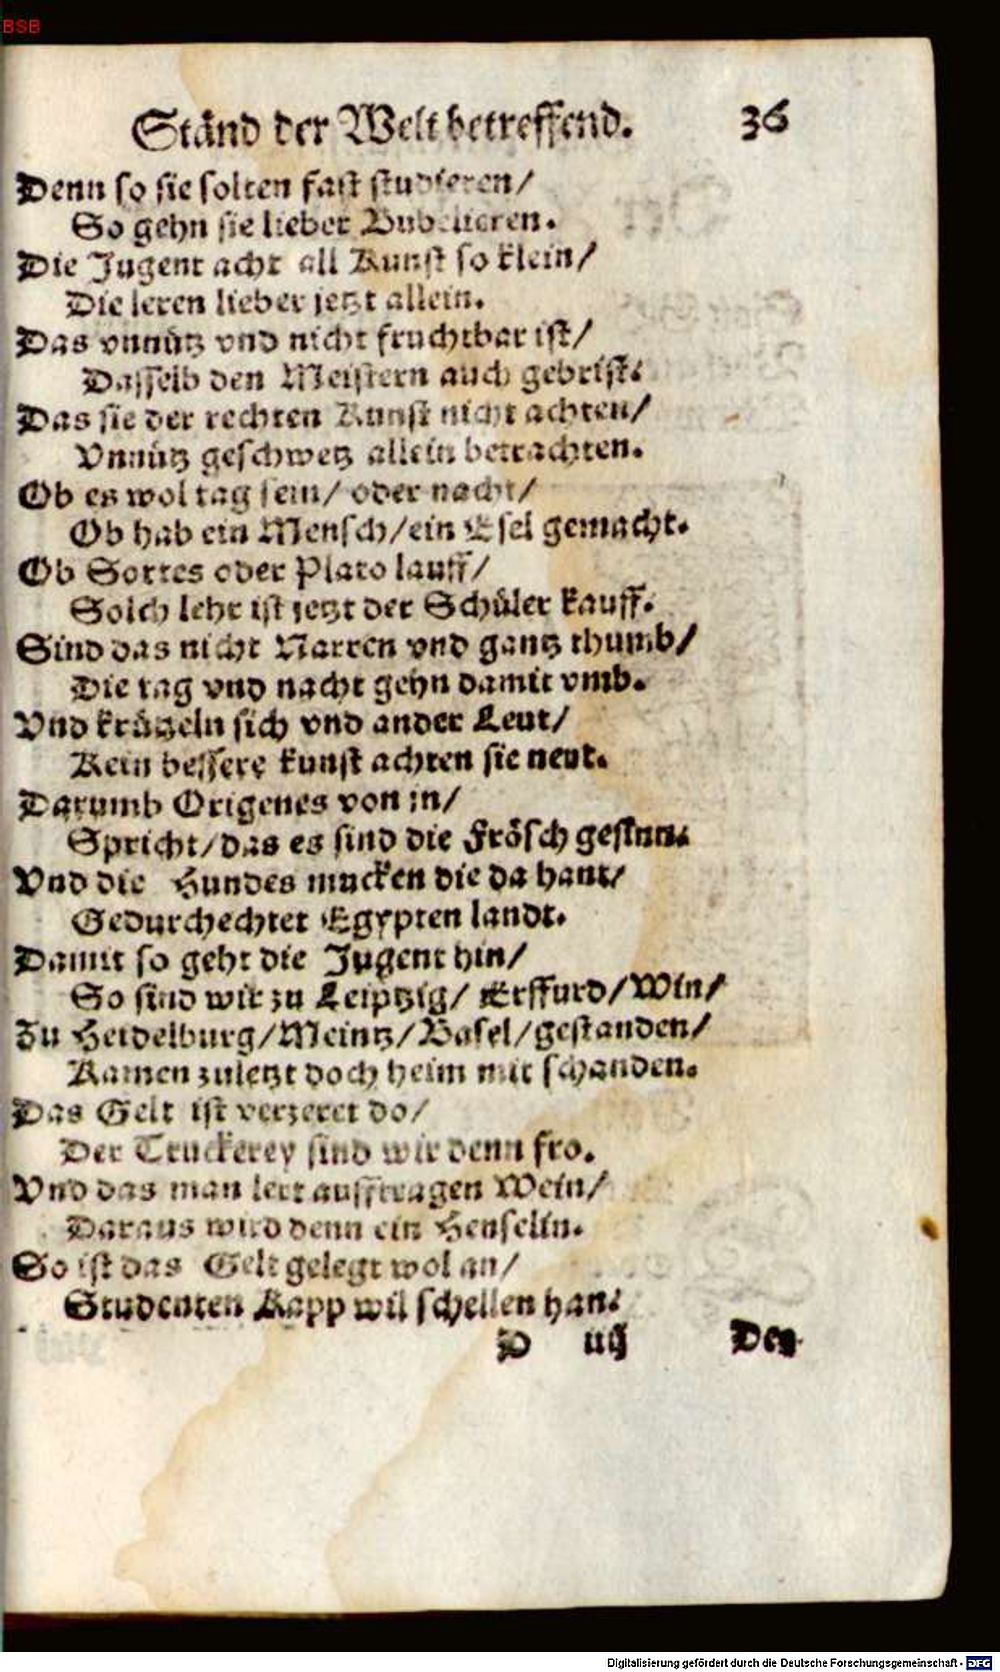 BSB
Ständ der Welt betreffend. 36
Denn so sie solten fast studieren/
So gehn sie lieber Bubelieren.
Die Jugent acht all Kunst so klein/
Die leren lieber jetzt allein.
Das vnnütz vnd nicht fruchtbar ist/
Dasselb den Meistern auch gebrist.
Das sie der rechten Kunst nicht achten/
Vnnütz geschwetz allein betrachten.
Ob es wol tag sein/ oder nacht/
Ob hab ein Mensch/ein Esel gemacht.
Ob Sortes oder Plato lauff/
Solch lehr ist jetzt der Schüler kauff.
Sind das nicht Narren vnd gantz thumb/
Die tag vnd nacht gehn damit vmb.
Vnd krügeln sich vnd ander Leut/
Kein bessere kunst achten sie neut.
Darumb Origenes von in/
Spricht/das es sind die Frösch
Vnd die Hundes mucken die da hant/
Gedurchechtet Egypten landt.
Damit so geht die Jugent hin/
So sind wir zu Leiptzig/ Erffurd/Win/
Zu Heidelburg/Meintz/Basel/gestanden/
Kamen zuletzt doch heim mit schanden.
Das Gelt ist verzeret do/
Der Truckerey sind wir denn fro.
Vnd das man lert aufftragen Wein/
Daraus wird denn ein Henselin.
So ist das Gelt gelegt wol an/
Studenten Kapp wil schellen han.
D iiij Der
Digitalisierung gefördert durch die Deutsche Forschungsgemeinschaft - DFG